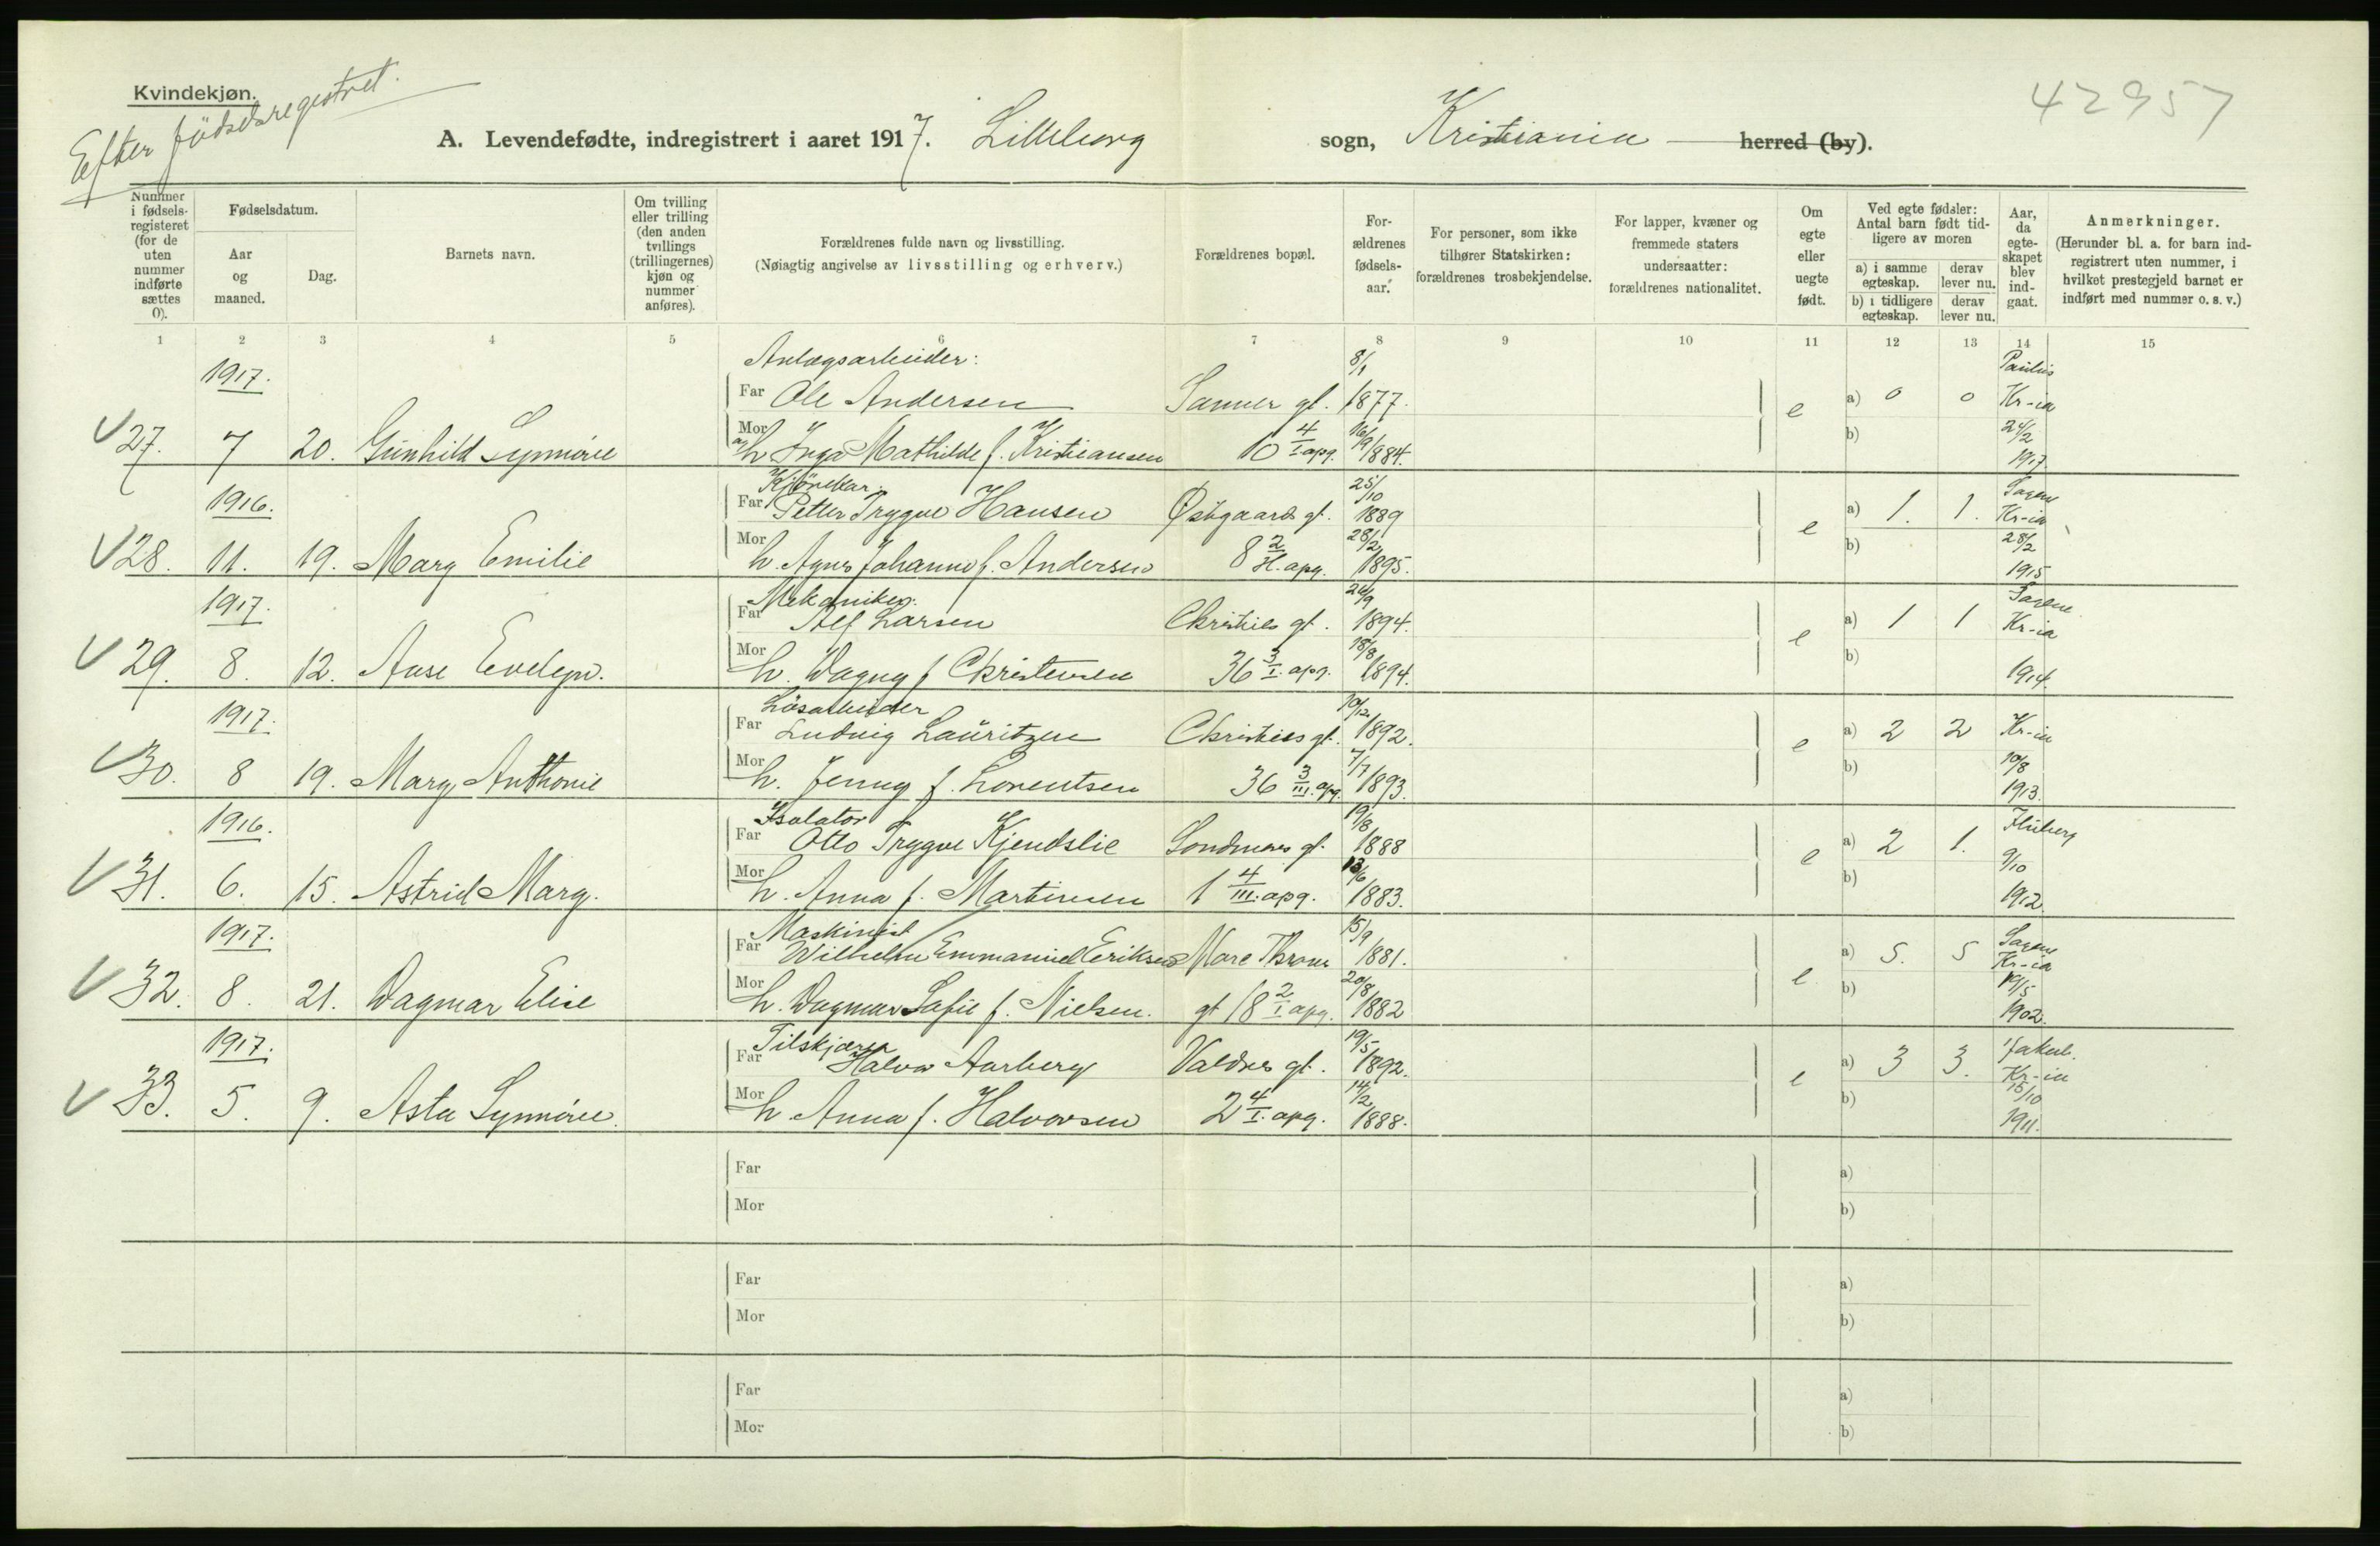 Kvindekjøn.
Efter fødselsregistret.
42957
A. Levendefødte, indregistrert i aaret 1917. Lilleborg sogn, Kristiania herred (by).
Nummer i fødsels-registeret (for de uten nummer indførte sættes 0).
Fødselsdatum.
Aar og maaned.
Dag.
Barnets navn.
Om tvilling eller trilling (den anden tvillings (trillingernes) kjøn og nummer anføres).
Forældrenes fulde navn og livsstilling.
(Nøiagtig angivelse av livsstilling og erhverv.)
Forældrenes bopæl.
For-ældrenes fødsels-aar.
For personer, som ikke tilhører Statskirken: forældrenes trosbekjendelse.
For lapper, kvæner og fremmede staters undersaatter: forældrenes nationalitet.
Om egte eller uegte født.
Ved egte fødsler: Antal barn født tid-ligere av moren
a) i samme egteskap.
derav lever nu.
b) i tidligere egteskap.
derav lever nu.
Aar, da egte-skapet blev ind-gaat.
Anmerkninger.
(Herunder bl. a. for barn ind-registrert uten nummer, i hvilket prestegjeld barnet er indført med nummer o. s. v.)
1 2 3 4 5 6 7 8 9 10 11 12 13 14 15
1917. Anlægsarbeider: 8/1 Paulus
Far Ole Andersen Sanner gt. 1877. e a) 0 0 Kr-ia
V 27. 7 20. Gunhild Synnöve Mor h Inga Mathilde f. Kristiansen 10 4/I apg. 16/9 1884. b) 24/2 1917.
1916. Kjörekar. 25/10 Sagene
Far Petter Trygve Hansen Østgaards gt. 1889 e a) 1. 1. Kr-ia
V 28. 11. 19. Marg Emilie Mor h. Agnes Johanne f. Andersen 8 2/II. apg. 28/2 1895. b) 28/2 1915
1917. Mekaniker. 26/9 Sagene
Far Alf Larsen Christies gt. 1894. e a) 1 1 Kr-ia
V 29. 8. 12. Aase Evelyn. Mor h. Dagny f Christensen 36 3/I. apg. 18/8 1894. b) 1914.
1917. Lösarbeider 10/12
Far Ludvig Lauritzen Christies gt. 1892. e a) 2 2 Kr-ia
V 30. 8 19. Marg, Anthonie Mor h. Jenny f. Lorentsen 36 3/III. apg. 7/7 1893. b) 10/8 1913.
1916. Isolatör 19/8 Fluberg
Far Otto Trygve Kjendslie Söndmörs gt. 1888 e a) 2 1.
V 31. 6. 15. Astrid Marg. Mor h. Anna f. Martinsen 1 4/III. apg. 13/6 1883. b) 9/10 1912.
1917. Maskinist 15/9 Sagene
Far Wilhelm Emmanuel Eriksen Marc Thrane 1881. e a) 5. 5 Kr-ia
V 32. 8. 21. Dagmar Elise Mor h. Dagmar Sofie f. Nielsen. gt 18 2/I apg. 20/8 1882 b) 19/5 1902.
1917. Tilskjærer 19/5 Jakob.
Far Halvor Aarberg Valdres gt. 1892. e a) 3 3. Kr-ia
V 33. 5. 9. Asta Synnöve. Mor h. Anna f. Halvorsen 2 4/I. apg. 14/2 1888. b) 15/10 1911.
Far a)
Mor b)
Far a)
Mor b)
Far a)
Mor b)